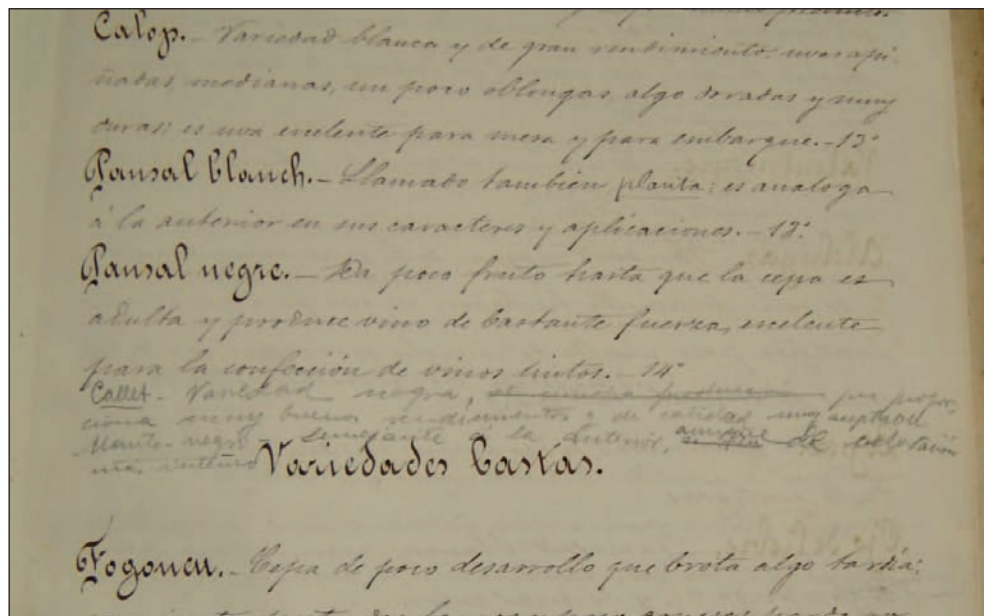 Calop. - Variedad blanca y de gran rendimiento: uvas api-
ñadas, medianas, un poco oblongas, algo doradas y muy
duras: es uva excelente para mesa y para embarque. - 13°
Pansal blanch. - Llamado también planta: es analoga
á la anterior en sus caracteres y aplicaciones. - 12°
Pansal negre. - Da poco fruto hasta que la cepa es
adulta y produce vino de bastante fuerza, excelente
para la confección de vinos tintos. - 14°
Callet - Variedad negra, que propor-
ciona muy buenos rendimientos y de calidad muy aceptable
Manto-negro - Semejante a la anterior, aunque de coloración
Variedades bastas.
Fogoneu. - Cepa de poco desarrollo que brota algo tardía: